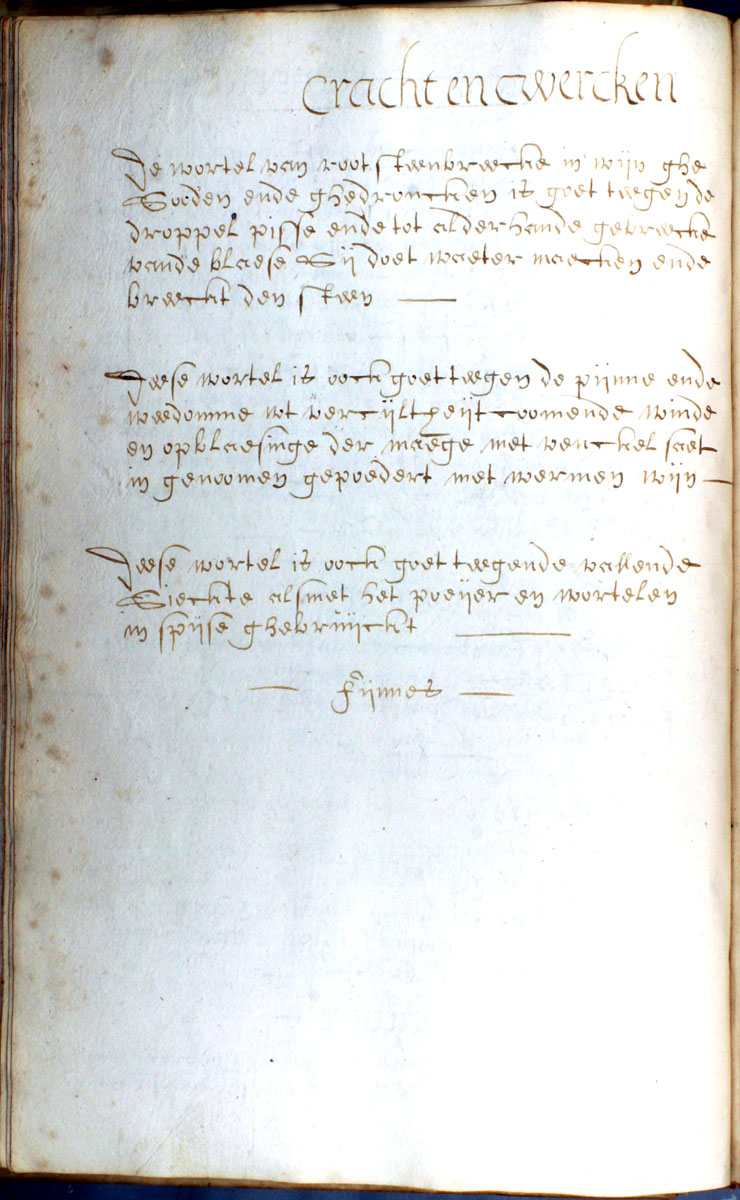 Cracht en wercken
De wortel van root steenbreecke in wijn ghe
Sooden ende ghedroncken is goet teegen de
droppel pisse ende tot alderhande gebreecke
vande blaese Sij doet waeter maecken ende
breeckt den steen
Deese wortel is oock goet teegen de pijnne ende
weedomme wt vercijltheijt coomende winde
en opblaesinge der maege met venckel saet
in genoomen gepoedert met wermen wijn
Deese wortel is oock goet teegende vallende
Sieckte alsmet het poeijer en wortelen
in spijse ghebruijckt
Fijnnes